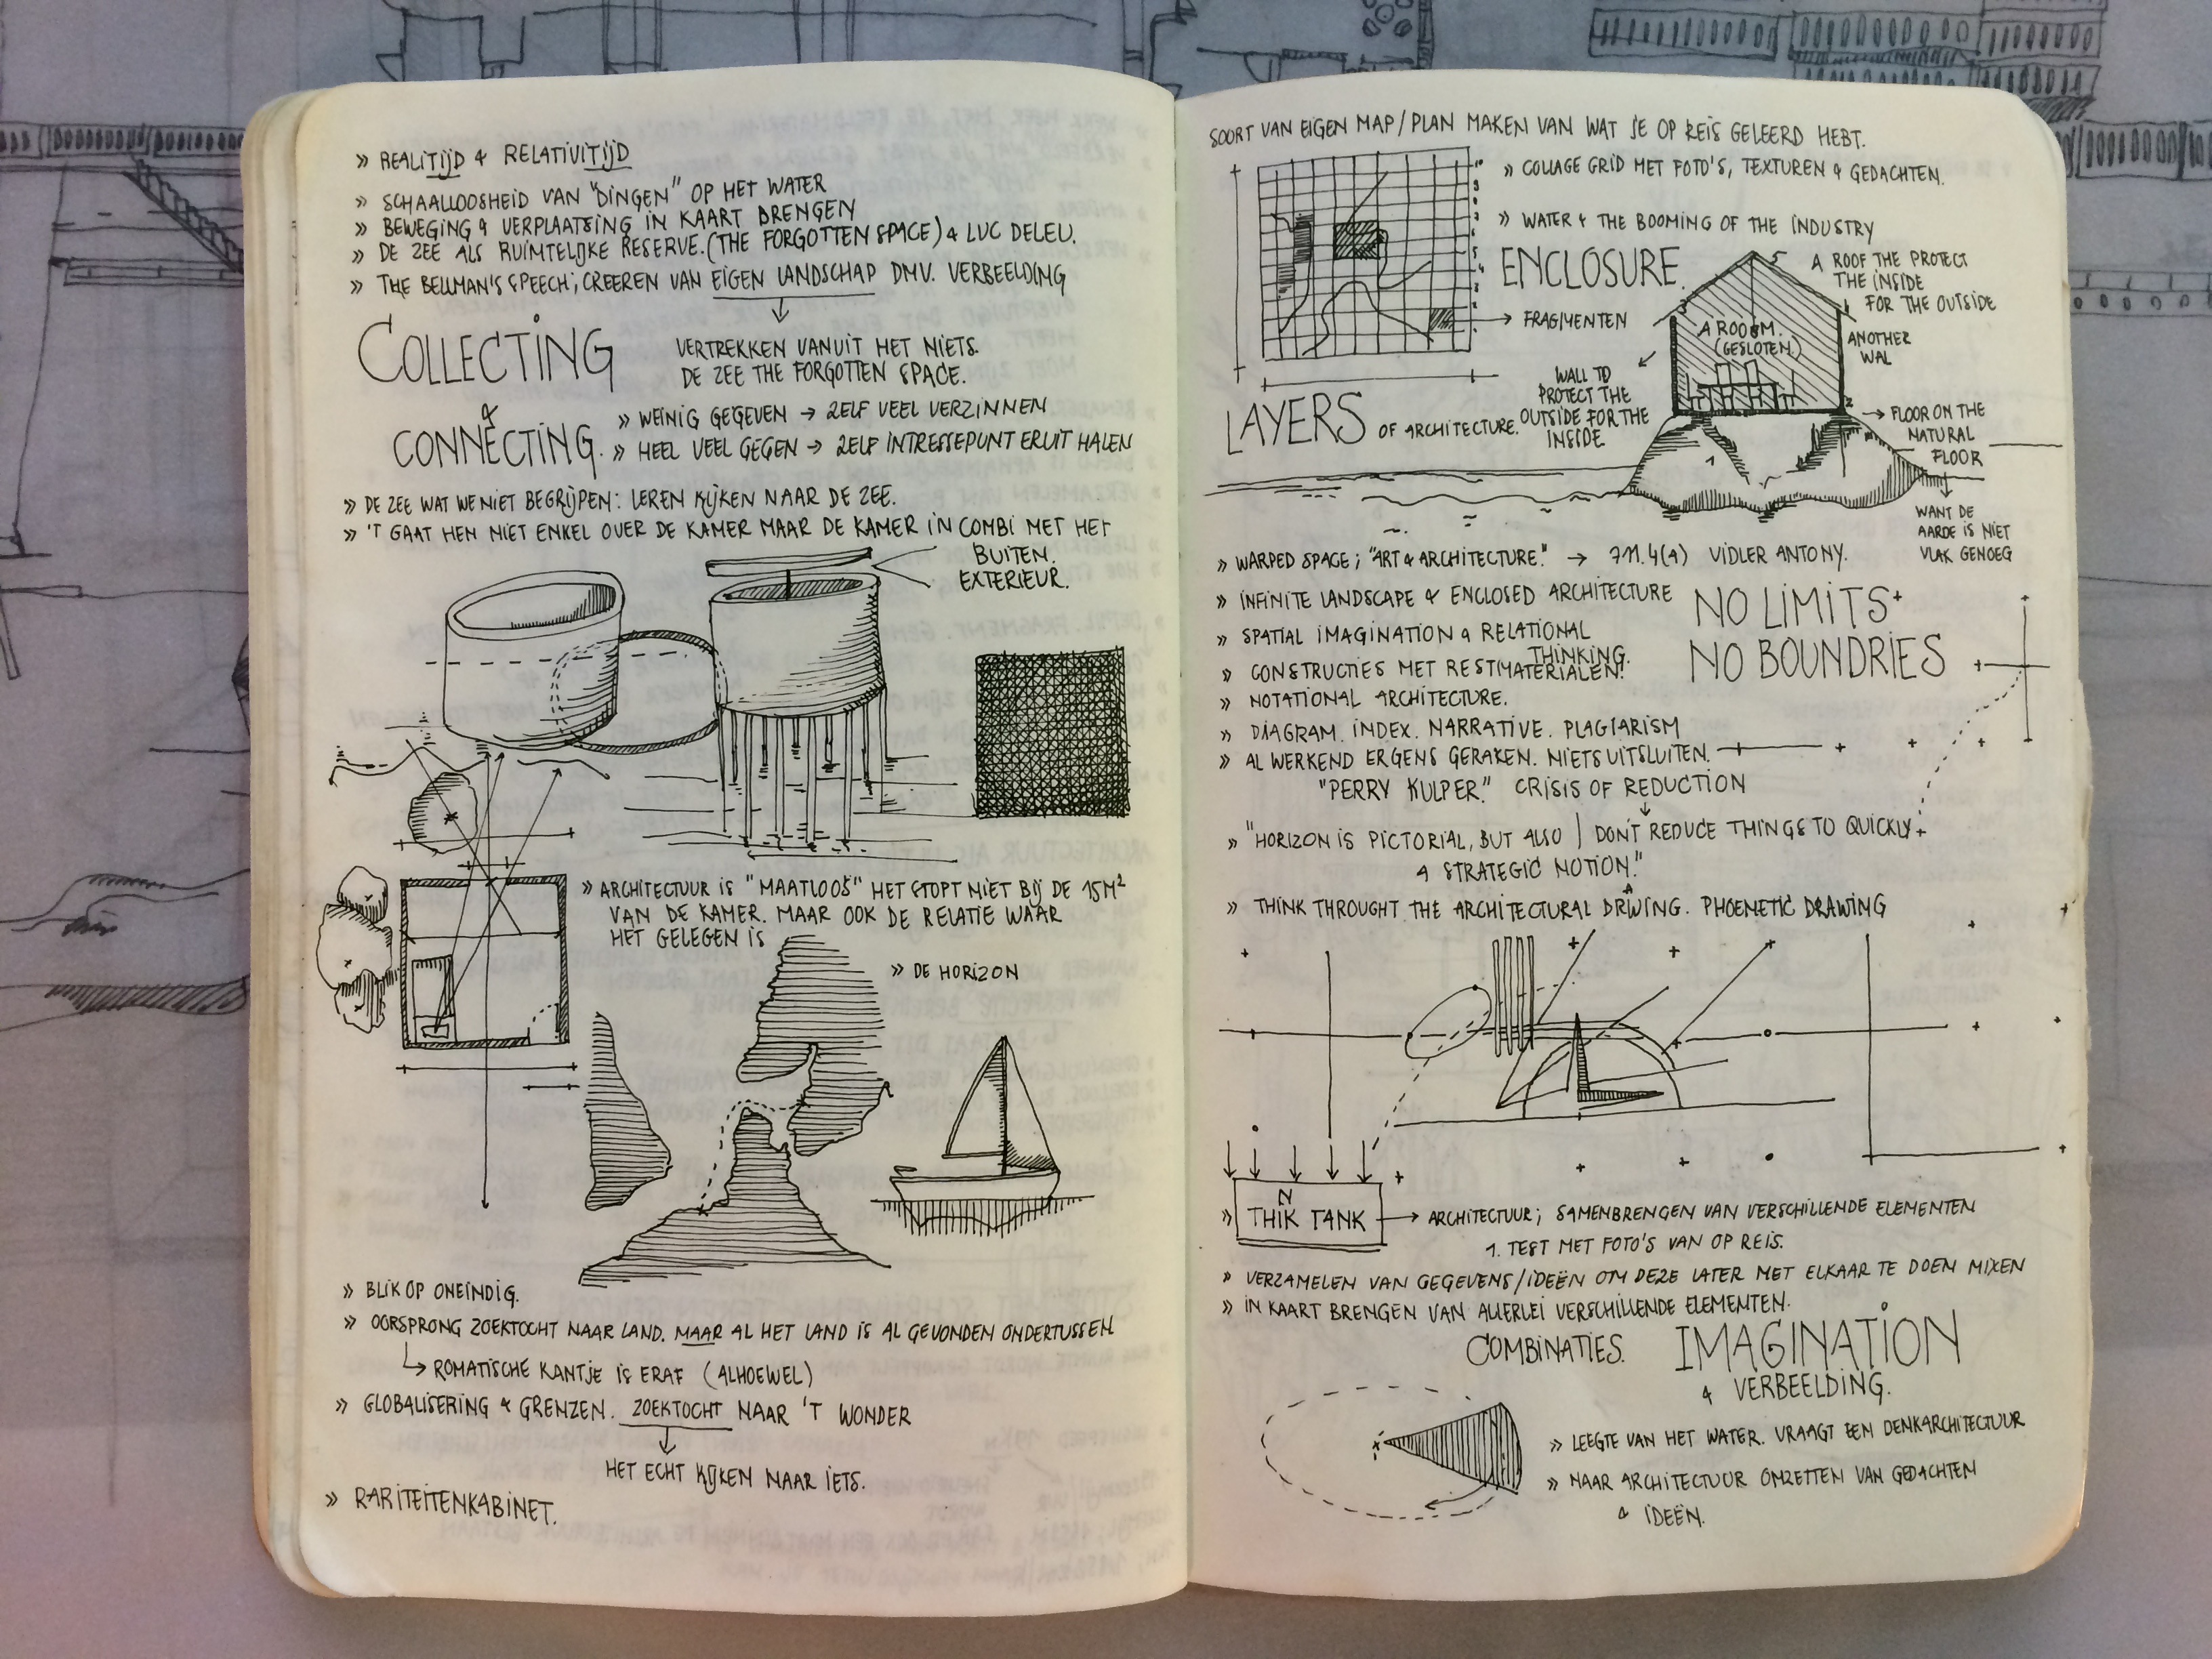 » REALITIJD & RELATIVITIJD
» SCHAALLOOSHEID VAN "DINGEN" OP HET WATER
» BEWEGING & VERPLAATSING IN KAART BRENGEN
» DE ZEE ALS RUIMTELIJKE RESERVE. (THE FORGOTTEN SPACE) & LUC DELEU.
» THE BELLMAN'S SPEECH; CREEREN VAN EIGEN LANDSCHAP DMV. VERBEELDING
COLLECTING
VERTREKKEN VANUIT HET NIETS.
DE ZEE THE FORGOTTEN SPACE.
&
CONNECTING.
» WEINIG GEGEVEN → ZELF VEEL VERZINNEN
» HEEL VEEL GEGEN → ZELF INTRESSEPUNT ERUIT HALEN
» DE ZEE WAT WE NIET BEGRIJPEN: LEREN KIJKEN NAAR DE ZEE.
» 'T GAAT HEN NIET ENKEL OVER DE KAMER MAAR DE KAMER IN COMBI MET HET
BUITEN.
EXTERIEUR.
» ARCHITECTUUR IS "MAATLOOS" HET STOPT NIET BIJ DE 15M²
VAN DE KAMER. MAAR OOK DE RELATIE WAAR
HET GELEGEN IS
» DE HORIZON
» BLIK OP ONEINDIG.
» OORSPRONG ZOEKTOCHT NAAR LAND. MAAR AL HET LAND IS AL GEVONDEN ONDERTUSSEN
↳ ROMATISCHE KANTJE IS ERAF (ALHOEWEL)
» GLOBALISERING & GRENZEN. ZOEKTOCHT NAAR 'T WONDER
HET ECHT KIJKEN NAAR IETS.
» RARITEITENKABINET.
SOORT VAN EIGEN MAP/PLAN MAKEN VAN WAT JE OP REIS GELEERD HEBT.
» COLLAGE GRID MET FOTO'S, TEXTUREN & GEDACHTEN.
» WATER & THE BOOMING OF THE INDUSTRY
ENCLOSURE.
→ FRAGMENTEN
A ROOF THE PROTECT
THE INSIDE
FOR THE OUTSIDE
A ROOM.
(GESLOTEN.)
ANOTHER
WAL
WALL TO
PROTECT THE
OUTSIDE FOR THE
INSIDE.
LAYERS OF ARCHITECTURE.
→ FLOOR ON THE
NATURAL
FLOOR
WANT DE
AARDE IS NIET
VLAK GENOEG
» WARPED SPACE; "ART & ARCHITECTURE." → 711.4(A) VIDLER ANTONY.
» INFINITE LANDSCAPE & ENCLOSED ARCHITECTURE
NO LIMITS
NO BOUNDRIES
» SPATIAL IMAGINATION & RELATIONAL
THINKING.
» CONSTRUCTIES MET RESTMATERIALEN.
» NOTATIONAL ARCHITECTURE.
» DIAGRAM. INDEX. NARRATIVE. PLAGIARISM
» AL WERKEND ERGENS GERAKEN. NIETS UITSLUITEN.
"PERRY KULPER." CRISIS OF REDUCTION
» "HORIZON IS PICTORIAL, BUT ALSO | DON'T REDUCE THINGS TO QUICKLY.
A STRATEGIC NOTION."
» THINK THROUGHT THE ARCHITECTURAL DRAWING. PHOENETIC DRAWING
» THINK TANK → ARCHITECTUUR; SAMENBRENGEN VAN VERSCHILLENDE ELEMENTEN
1. TEST MET FOTO'S VAN OP REIS.
» VERZAMELEN VAN GEGEVENS/IDEEËN OM DEZE LATER MET ELKAAR TE DOEN MIXEN
» IN KAART BRENGEN VAN ALLERLEI VERSCHILLENDE ELEMENTEN.
COMBINATIES. IMAGINATION
& VERBEELDING.
» LEEGTE VAN HET WATER. VRAAGT EEN DENKARCHITECTUUR
» NAAR ARCHITECTUUR OMZETTEN VAN GEDACHTEN
& IDEEËN.